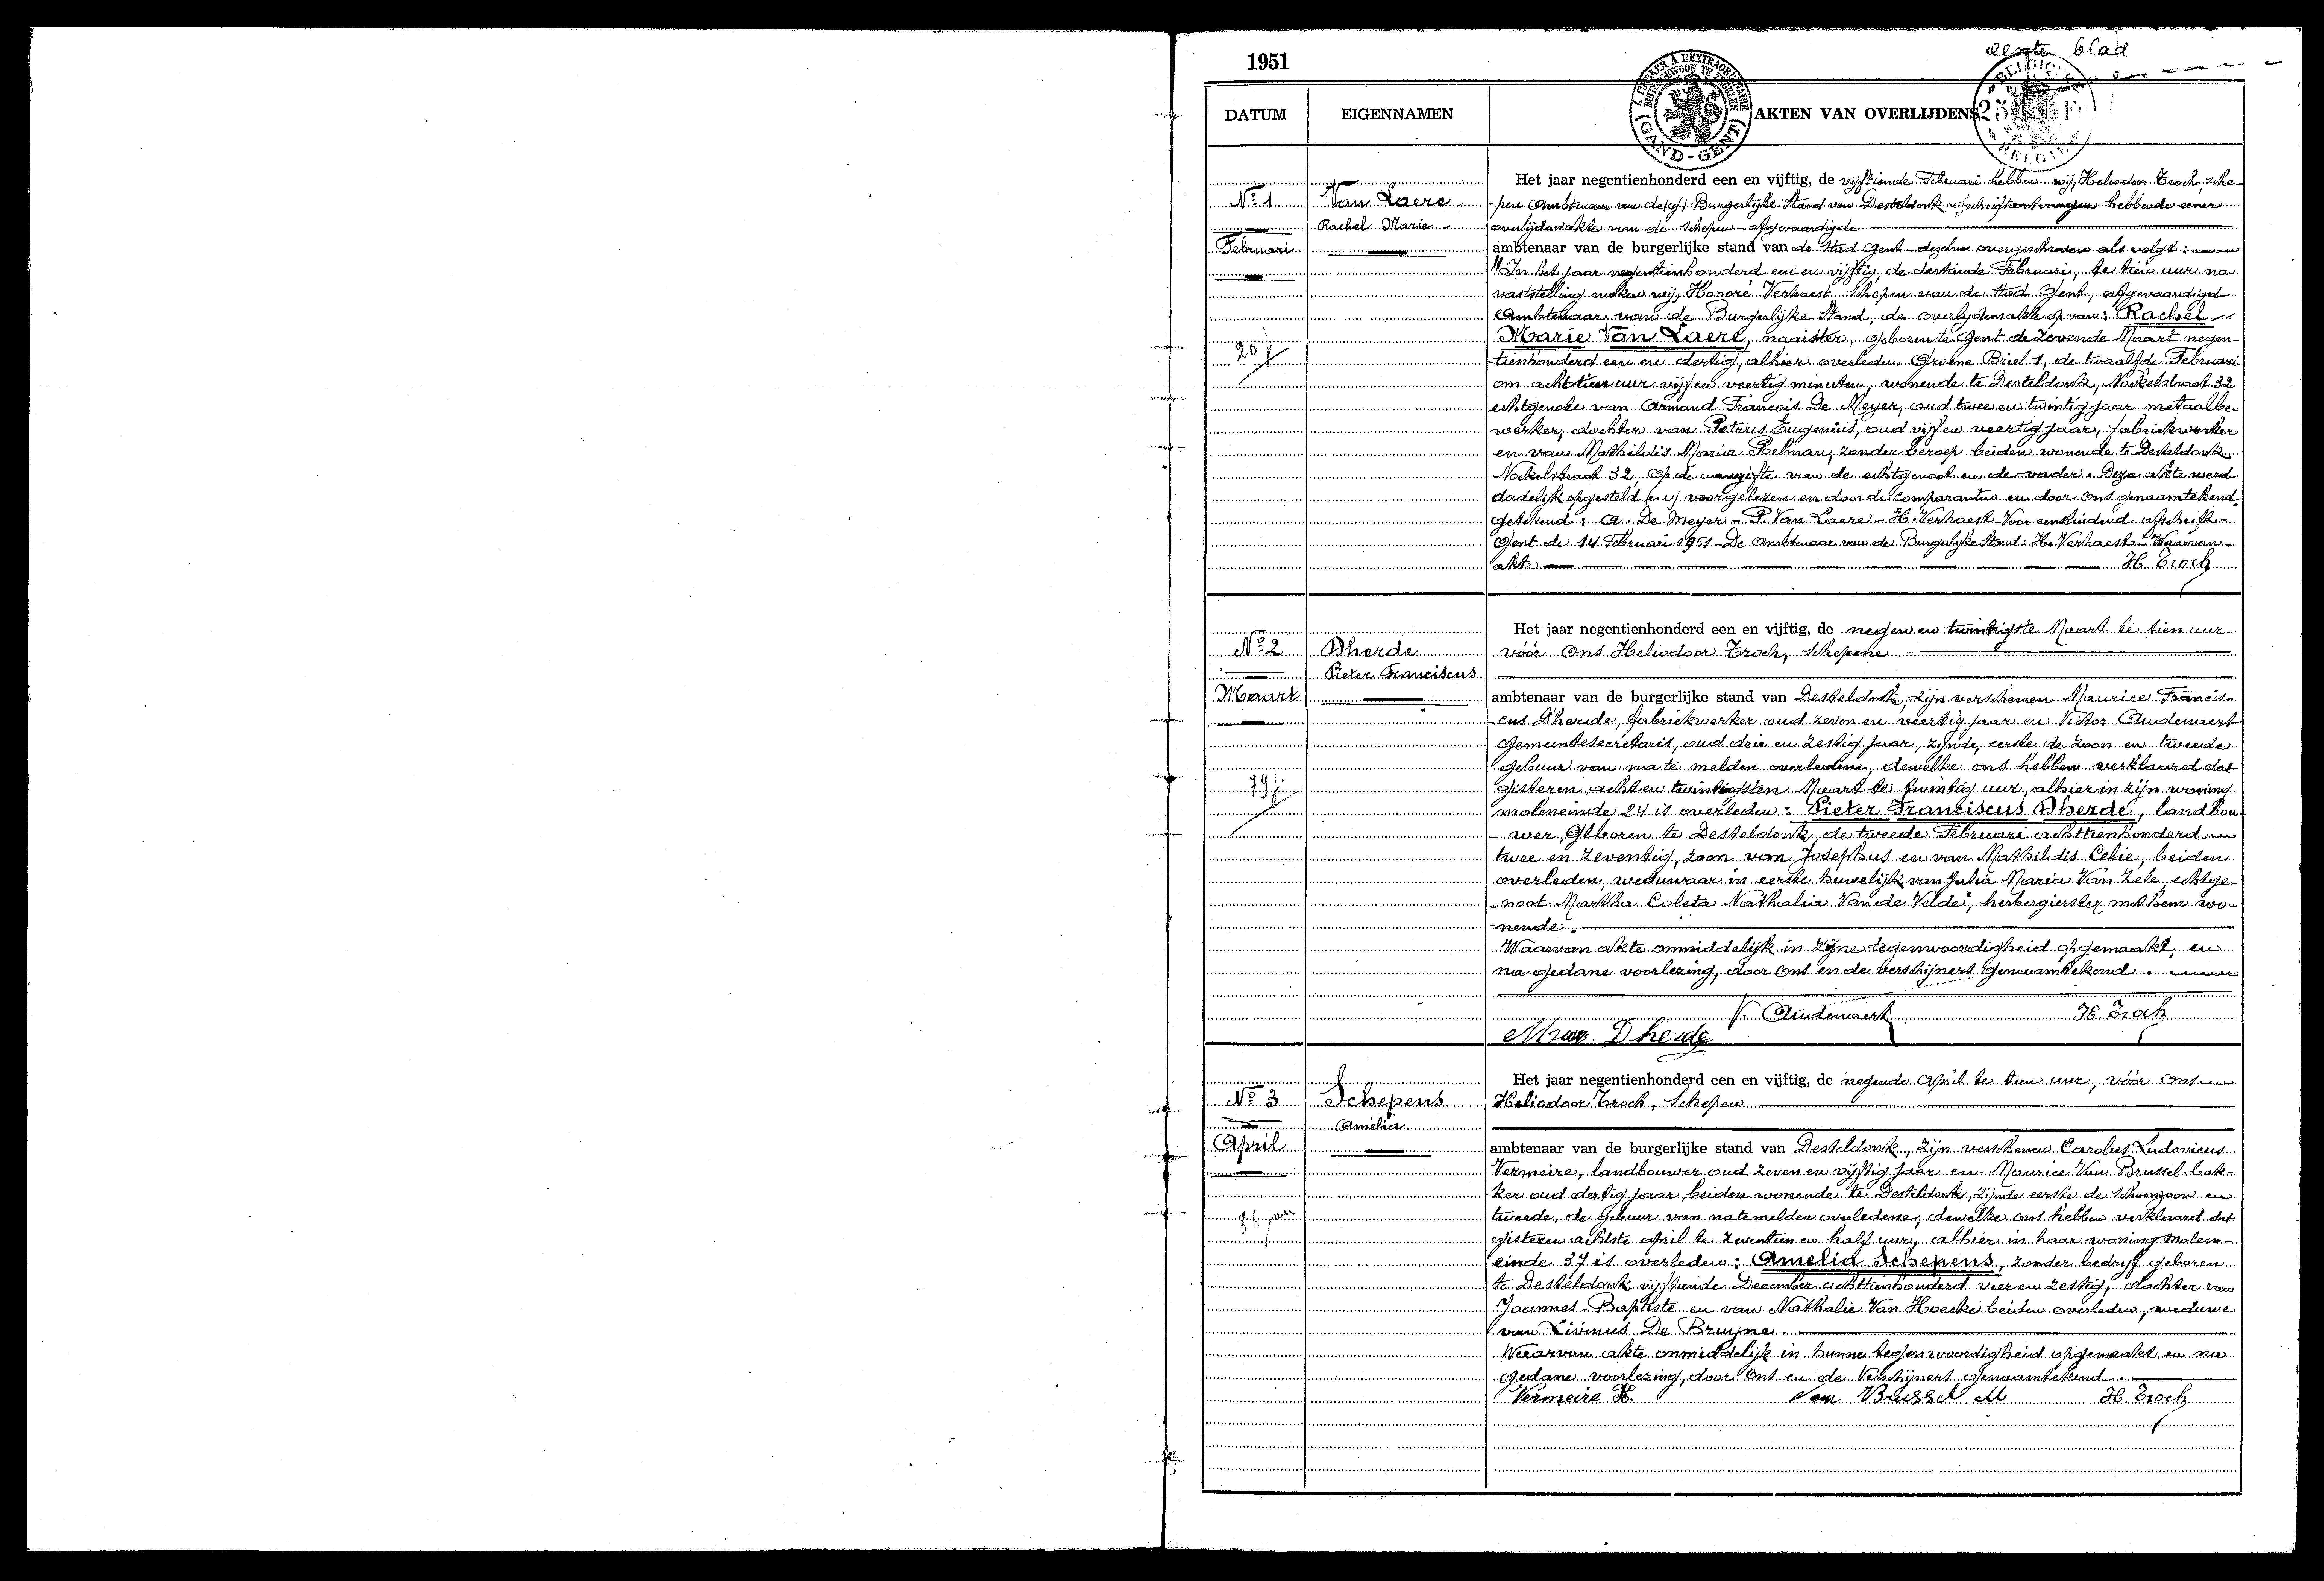 eerste blad
1951
A TIMBRER À L'EXTRAORDINAIRE
BUITENGEWOON TE ZEGELEN
(GAND-GENT)
BELGIQUE
25 F
BELGIE
DATUM EIGENNAMEN AKTEN VAN OVERLIJDENS
Het jaar negentienhonderd een en vijftig, de vijftiende Februari hebben wij, Heliodoor Troch, sche-
No 1 Van Laere -pen Ambtenaar van de Burgerlijke Stand van Desteldonk afschrift ontvangen hebbende eener
Rachel Marie overlijdensakte van de schepen - afgevaardigde
Februari ambtenaar van de burgerlijke stand van de Stad Gent - dezelve overgeschreven als volgt:
"In het jaar negentienhonderd een en vijftig, de dertiende Februari, te tien uur na
vaststelling maken wij, Honoré Verhaest Schepen van de Stad Gent, afgevaardigd
Ambtenaar van de Burgerlijke Stand, de overlijdensakte op van: Rachel
Marie Van Laere, naaister, geboren te Gent de zevende Maart negen-
20 j
-tienhonderd een en dertig, alhier overleden Groene Briel 1, de twaalfde Februari
om achttien uur vijf en veertig minuten, wonende te Desteldonk, Nokelstraat 32
echtgenote van Armand Francois De Meyer, oud twee en twintig jaar metaalbe-
werker, dochter van Petrus Eugenius, oud vijf en veertig jaar, fabriekwerker
en van Mathildis Maria Poelman, zonder beroep beiden wonende te Desteldonk
Nokelstraat 32. Op de aangifte van de echtgenoot en de vader. Deze akte werd
dadelijk opgesteld en voorgelezen en door de comparanten en door ons genaamtekend.
getekend: A. De Meyer - P. Van Laere - H. Verhaest - Voor eensluidend afschrift -
Gent de 14 Februari 1951 - De Ambtenaar van de Burgerlijke Stand: H. Verhaest - Waarvan
akte H Troch
Het jaar negentienhonderd een en vijftig, de negen en twintigste Maart te tien uur
No 2 Dherde vóór Ons Heliodoor Troch, schepene
Pieter Franciscus
Maart ambtenaar van de burgerlijke stand van Desteldonk, zijn verschenen Maurice Francis-
-cus D'herde, fabriekwerker oud zeven en veertig jaar en Victor Audenaert
gemeentesecretaris, oud drie en zestig jaar, zijnde, eerste de zoon en tweede
gebuur van na te melden overledene, dewelke ons hebben verklaard dat
79 j
gisteren acht en twintigsten Maart te twintig uur, alhier in zijn woning
moleneinde 24 is overleden: Pieter Franciscus Dherde, landbou-
-wer, Geboren te Desteldonk, de tweede Februari achttienhonderd
twee en zeventig, zoon van Josephus en van Mathildis Celie, beiden
overleden, weduwaar in eerste huwelijk van Julia Maria Van Zele, echtge-
-noot Martha Coleta Nathalia Van de Velde, herbergierster met hem wo-
-nende.
Waarvan akte onmiddelijk in zijne tegenwoordigheid opgemaakt, en
na gedane voorlezing, door ons en de verschijners genaamtekend.
V. Audenaert H Troch
Maur. Dherde
Het jaar negentienhonderd een en vijftig, de negende April te tien uur, vóór ons
No 3 Schepens Heliodoor Troch, Schepen
Amelia
April ambtenaar van de burgerlijke stand van Desteldonk, zijn verschenen Carolus Ludovicus
Vermeire, landbouwer oud zeven en vijftig jaar en Maurice Van Brussel bak-
-ker oud dertig jaar, beiden wonende te Desteldonk, zijnde eerste de schoonzoon en
86 jaar
tweede, de gebuur van na te melden overledene, dewelke ons hebben verklaard dat
gisteren achtste april te zeventien en half uur, alhier in haar woning molen-
einde 37 is overleden: Amelia Schepens, zonder bedrijf geboren
te Desteldonk vijftiende December achttienhonderd vier en zestig, dochter van
Joannes Baptiste en van Nathalie Van Hoecke beiden overleden, weduwe
van Livinus De Bruyne.
Waarvan akte onmiddelijk in hunne tegenwoordigheid opgemaakt en na
gedane voorlezing, door Ons en de Verschijners genaamtekend.
Vermeire K. Van Brussel M H Troch